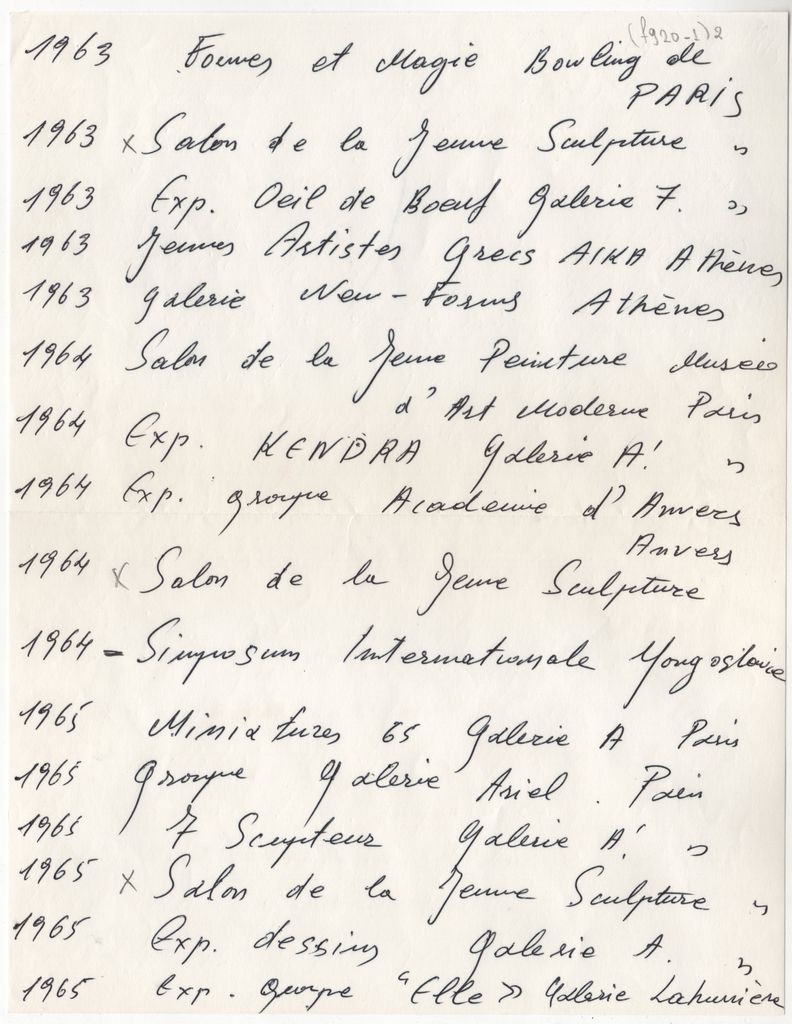 (f920-1)2
1963 Formes et Magie Bowling de
PARIS
1963 x Salon de la Jeune Sculpture "
1963 Exp. Oeil de Boeuf Galerie 7. "
1963 Jeunes Artistes Grecs AIKA Athènes
1963 Galerie New-Forms Athènes
1964 Salon de la Jeune Peinture Musée
d'Art Moderne Paris
1964 Exp. KENDRA Galerie A! "
1964 Exp. groupe Academie d'Anvers
Anvers
1964 x Salon de la Jeune Sculpture
1964 = Simposum Internationale Yougoslavie
1965 Miniatures 65 Galerie A Paris
1965 Groupe Galerie Ariel. Paris
1965 7 Scupteur Galerie A! "
1965 x Salon de la Jeune Sculpture "
1965 Exp. dessins Galerie A. "
1965 Exp. groupe "Elle» Galerie Lahumière